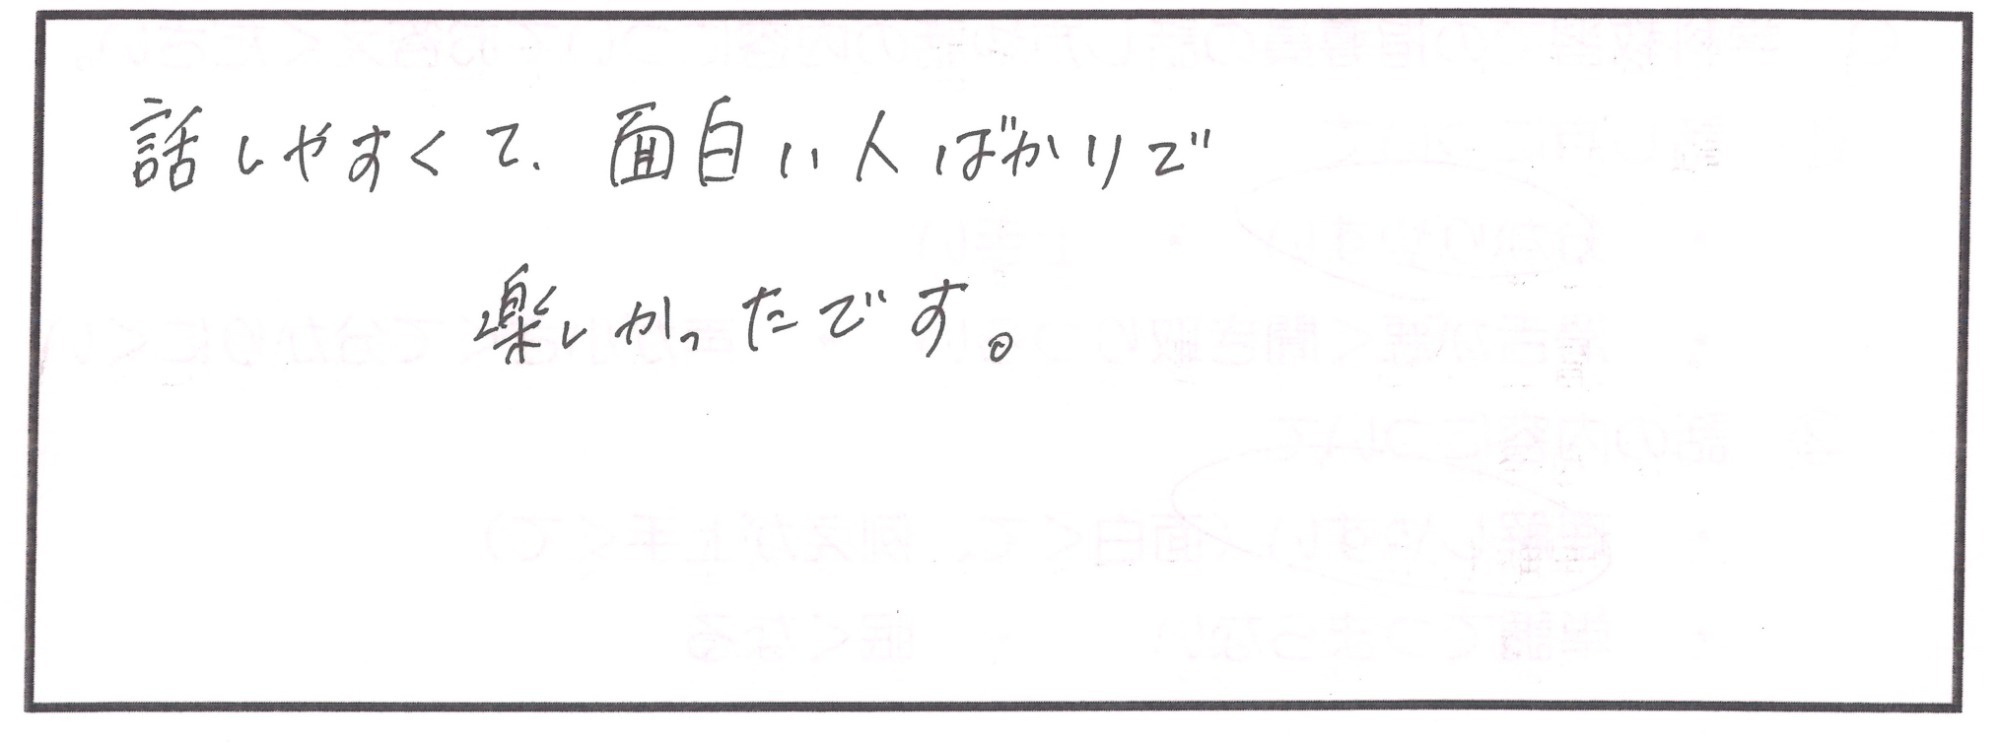 話しやすくて、面白い人ばかりで
楽しかったです。